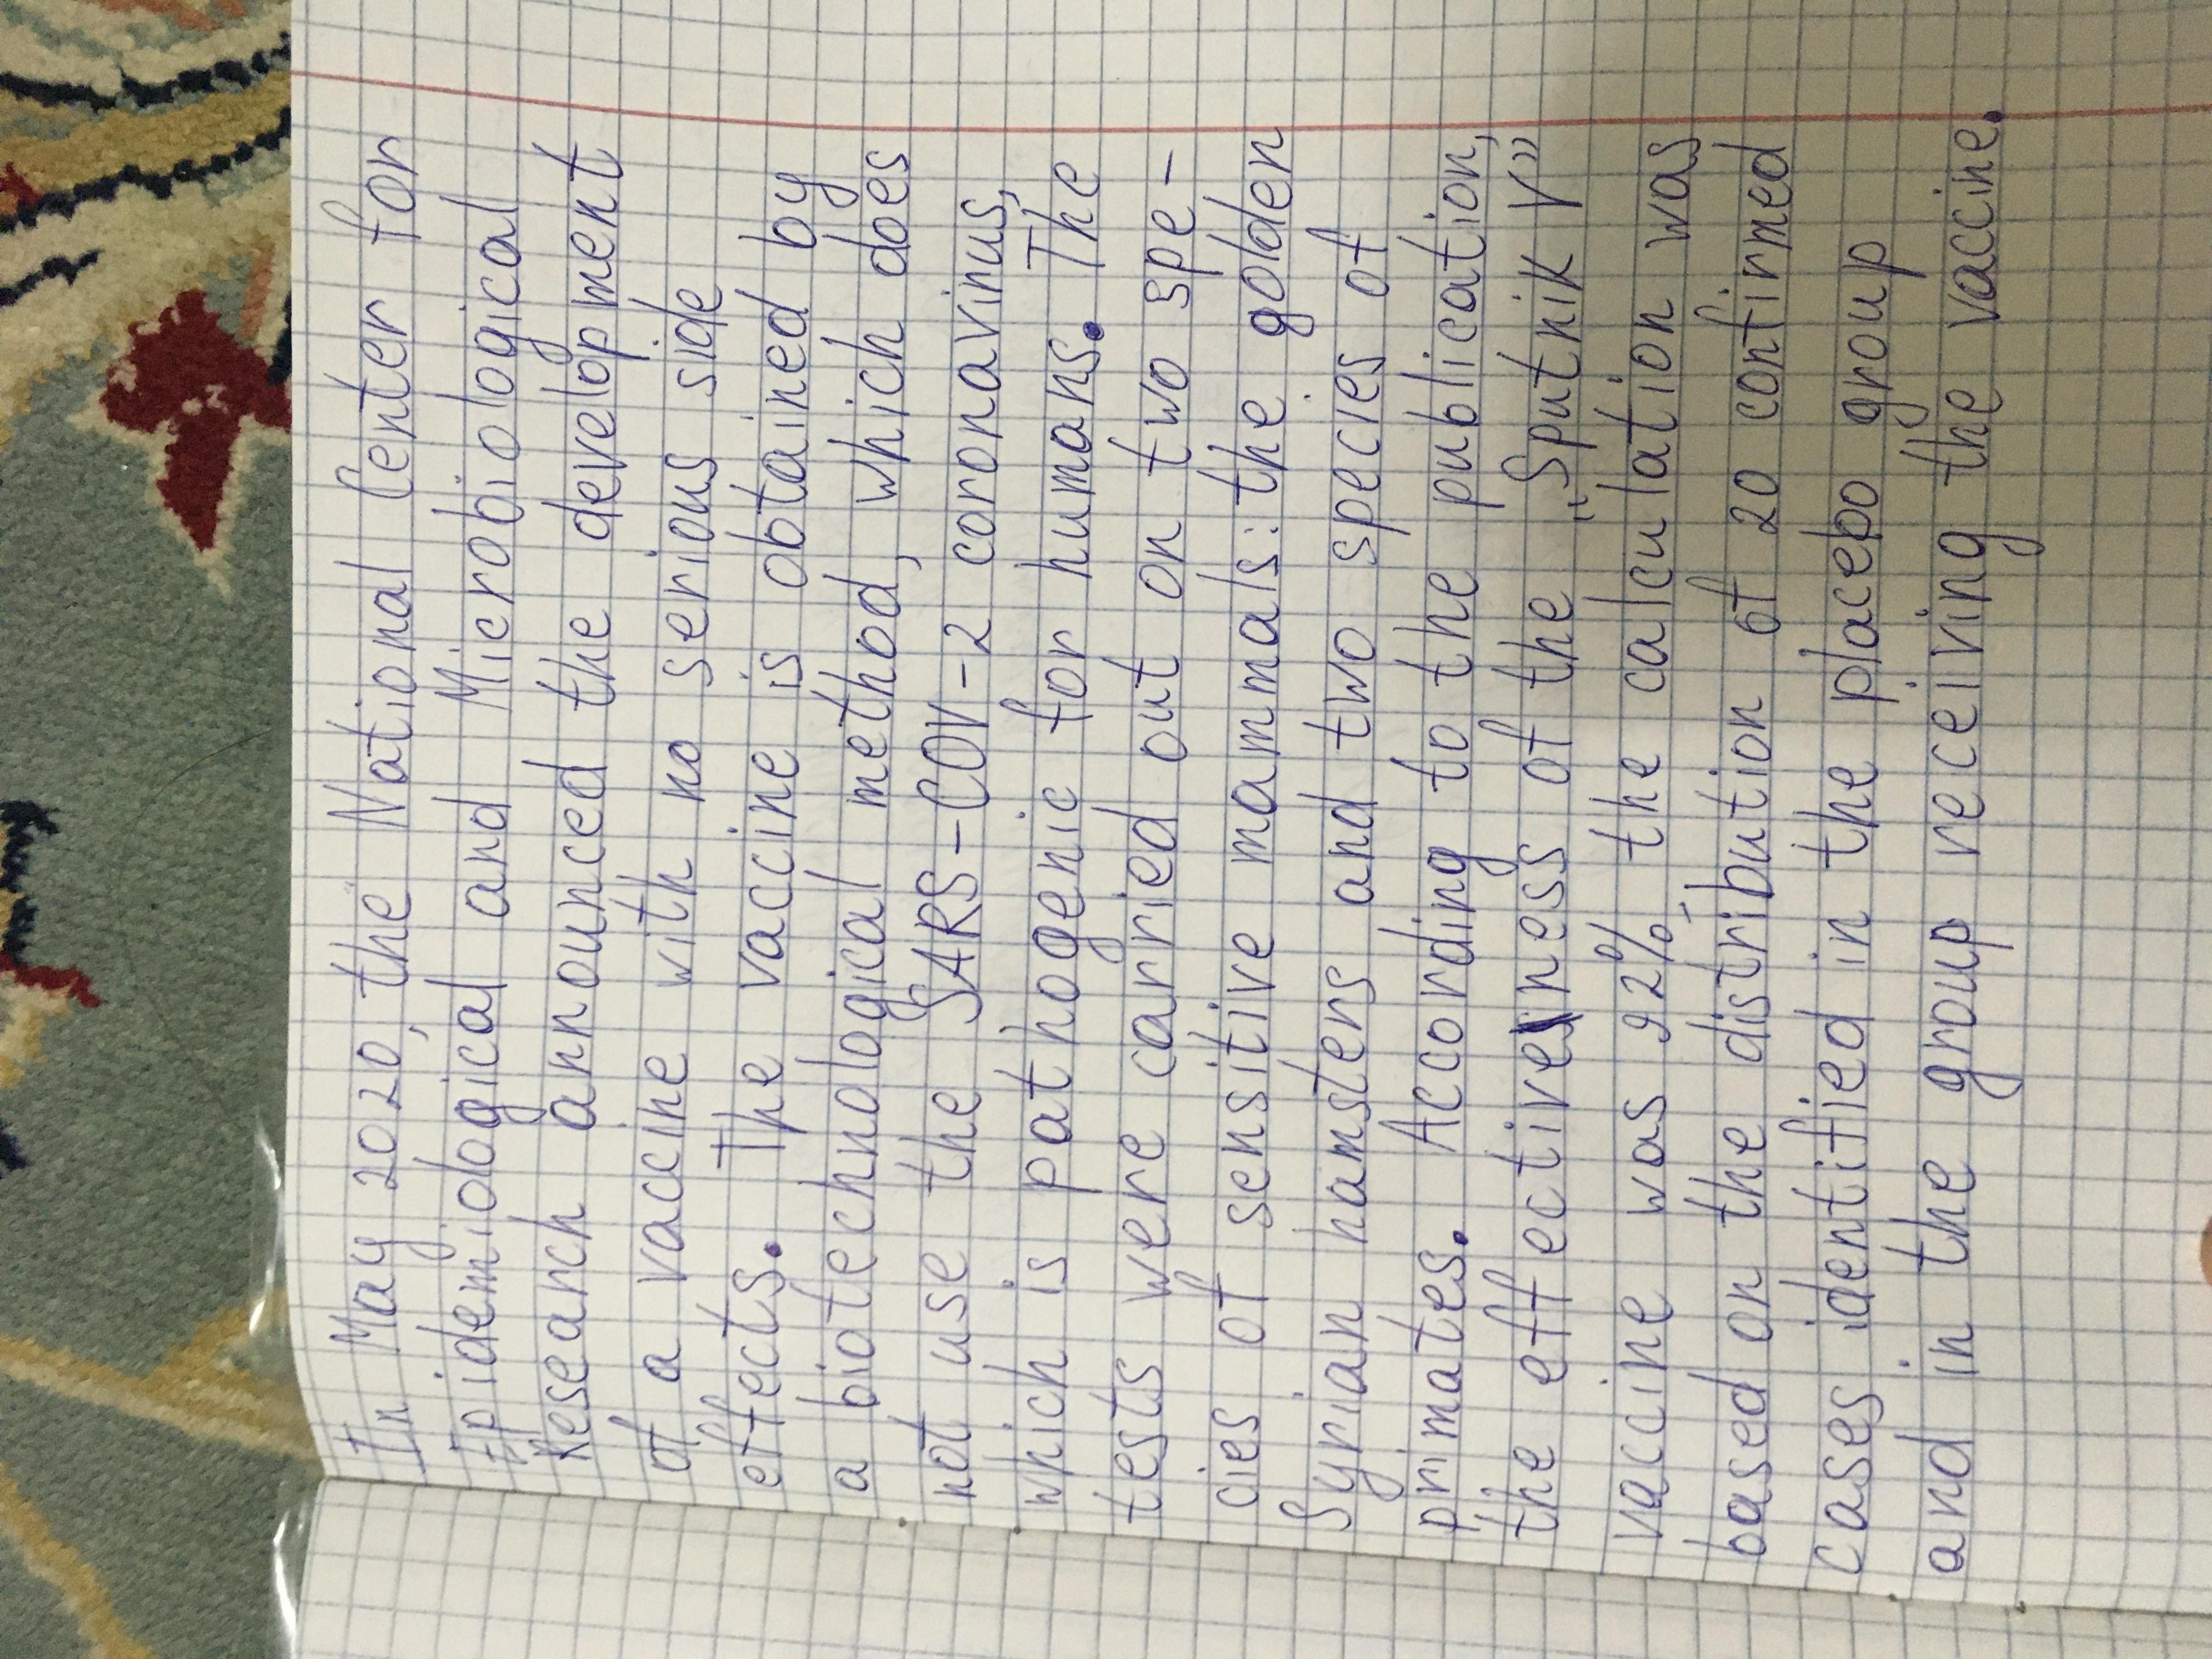 In May 2020, the National Center for
Epidemiological and Microbiological
Research announced the development
of a vaccine with no serious side
effects. The vaccine is obtained by
a biotechnological method, which does
not use the SARS-COV-2 coronavirus,
which is pathogenic for humans. The
tests were carried out on two spe-
cies of sensitive mammals: the golden
Syrian hamsters and two species of
primates. According to the publication,
the effectiveness of the „Sputnik V”
vaccine was 92%, the calculation was
based on the distribution of 20 confirmed
cases identified in the placebo group
and in the group receiving the vaccine.